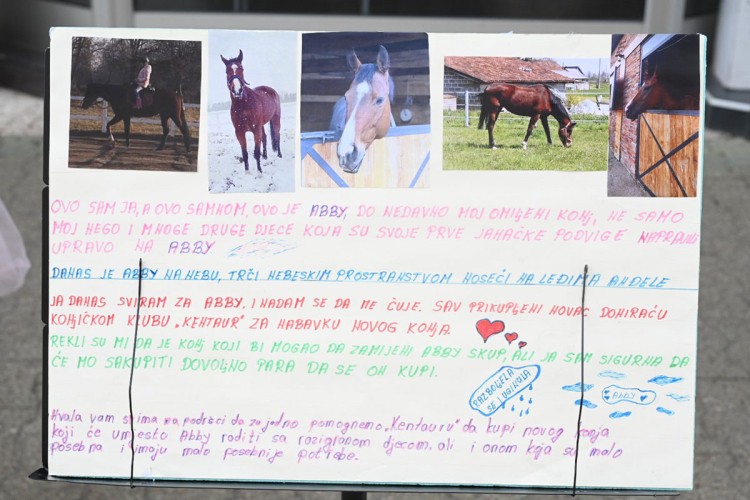 OVO SAM JA, A OVO SAMNOM, OVO JE ABBY, DO NEDAVNO MOJ OMILJENI KONJ, NE SAMO
MOJ NEGO I MNOGE DRUGE DJECE KOJA SU SVOJE PRVE JAHAČKE PODVIGE NAPRAVILI
UPRAVO NA ABBY
DANAS JE ABBY NA NEBU, TRČI NEBESKIM PROSTRANSTVOM NOSEĆI NA LEĐIMA ANĐELE
JA DANAS SVIRAM ZA ABBY. I NADAM SE DA ME ČUJE. SAV PRIKUPLJENI NOVAC DONIRAĆU
KONJIČKOM KLUBU „KENTAUR" ZA NABAVKU NOVOG KONJA.
REKLI SU MI DA JE KONJ KOJI BI MOGAO DA ZAMIJENI ABBY SKUP, ALI JA SAM SIGURNA DA
ĆE MO SAKUPITI DOVOLJNO PARA DA SE ON KUPI.
RAZBOLJELA
SE I OTIŠLA
ABBY
Hvala vam svima na podršci da zajedno pomognemo „Kentauru" da kupi novog konja
koji će umjesto Abby raditi sa razigranom djecom. ali i onom koja su malo
posebna i imaju malo posebnije potrebe.